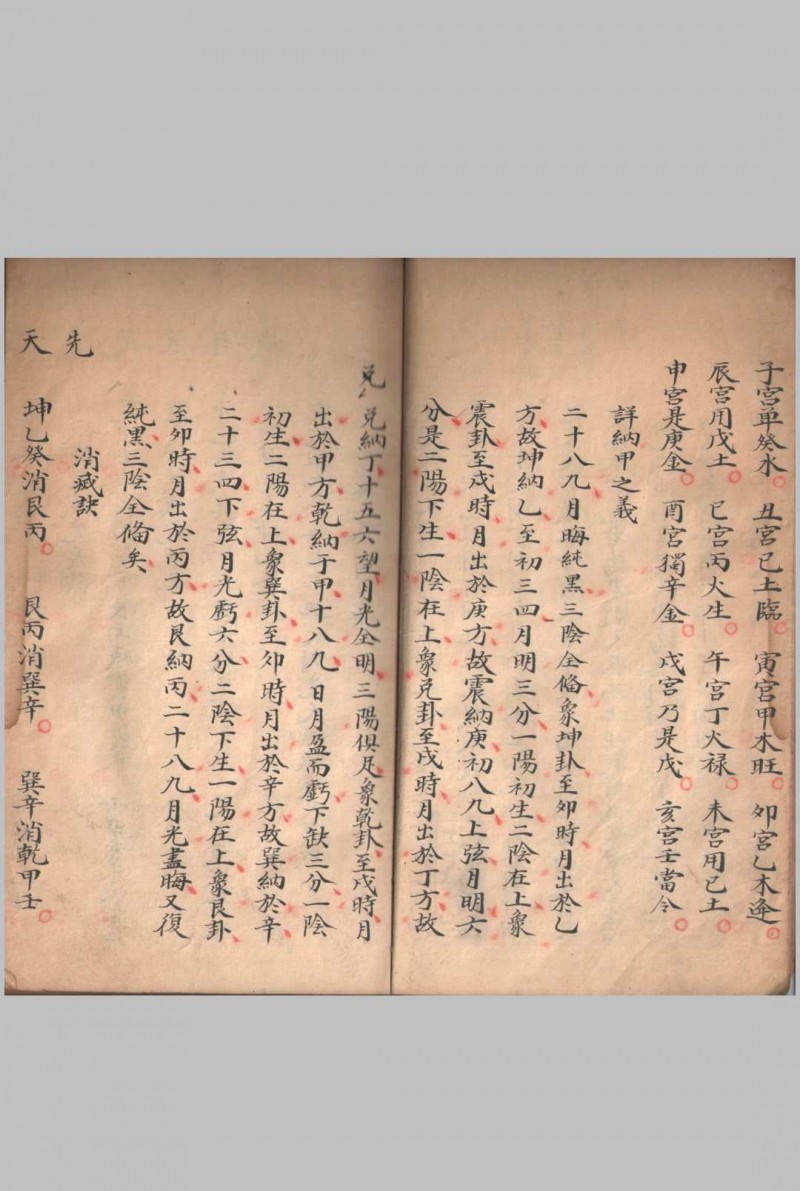 子宮單癸水 丑宮己土臨 寅宮甲木旺 卯宮乙木逢
辰宮用戊土 巳宮丙火生 午宮丁火祿 未宮用己土
申宮是庚金 酉宮獨辛金 戌宮乃是戊 亥宮壬當令
詳納甲之義
二十八九月晦純黑三陰全俻象坤卦至卯時月出於乙
方故坤納乙至初三四月明三分一陽初生二陰在上象
震卦至戌時月出於庚方故震納庚初八九上弦月明六
分是二陽下生一陰在上象兑卦至戌時月出於丁方故
兑兑納丁十五六望月光全明三陽俱足象乾卦至戌時月
出於甲方乾納于甲十八九日月盈而虧下缺三分一陰
初生二陽在上象巽卦至卯時月出於辛方故巽納於辛
二十三四下弦月光虧六分二陰下生一陽在上象艮卦
至卯時月出於丙方故艮納丙二十八九月光盡晦又復
純黑三陰全俻矣
消滅訣
先天
坤乙癸消艮丙 艮丙消巽辛 巽辛消乾甲壬